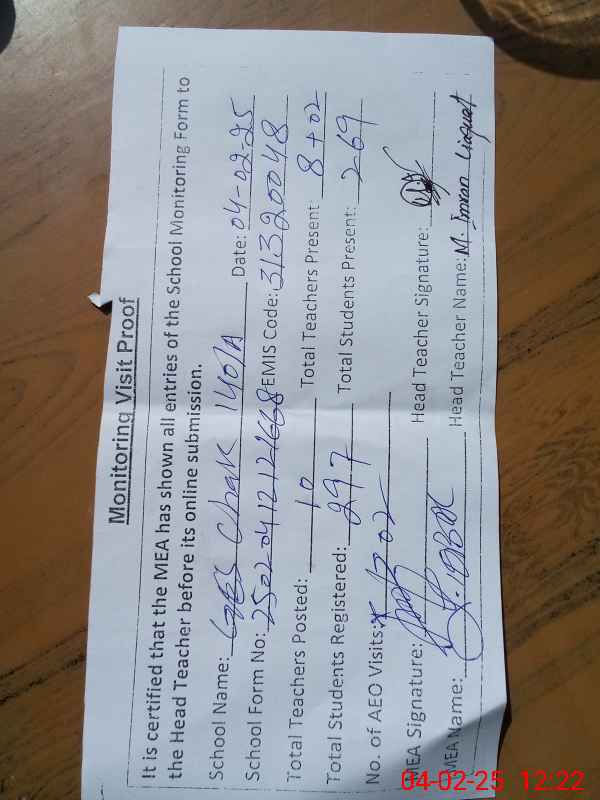 Monitoring Visit Proof
It is certified that the MEA has shown all entries of the School Monitoring Form to
the Head Teacher before its online submission.
School Name: GES Chak 140/A Date: 04-02-25
School Form No: EMIS Code: 31320048
Total Teachers Posted: 10 Total Teachers Present 8+02
Total Students Registered: 297 Total Students Present: 269
No. of AEO Visits: 02
MEA Signature: Head Teacher Signature:
MEA Name: Head Teacher Name: M. Imran Liaquat
04-02-25 12:22